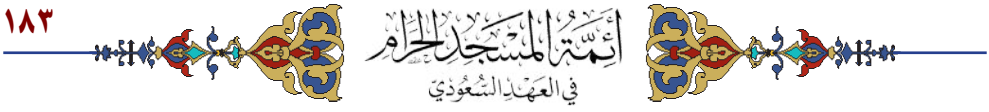 ١٨٣
أَئِمَّةُ المَسْجِدِ الحَرَامِ
في العَهْدِ السُّعُوديّ